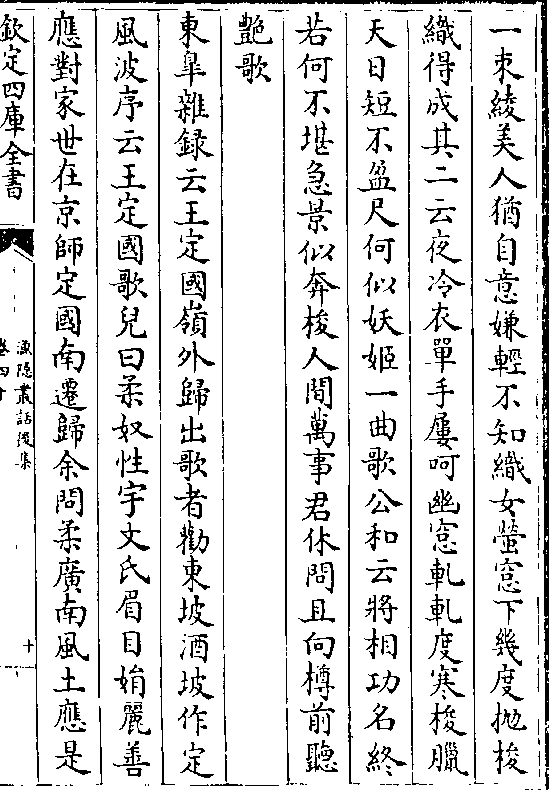 一束綾美人猶自意嫌輕不知織女螢窓下幾度抛梭
織得成其二云夜冷衣單手屢呵幽窓軋軋度寒梭臘
天日短不盈尺何似妖姬一曲歌公和云將相功名終
若何不堪急景似奔梭人間萬事君休問且向樽前聽
艶歌
東臯雜録云王定國嶺外歸出歌者勸東坡酒坡作定
風波序云王定國歌兒曰柔奴姓宇文氏眉目娟麗善
應對家世在京師定國南遷歸余問柔廣南風土應是
欽定四庫全書
漁隠叢話後集
卷四十
十